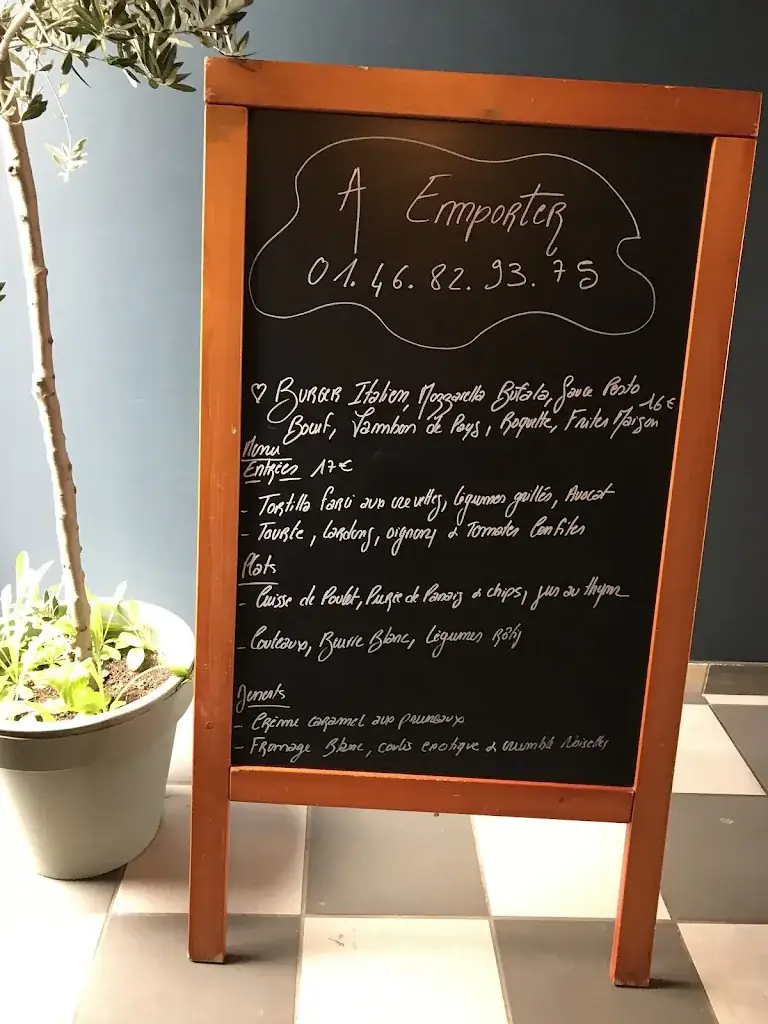 A Emporter
01.46.82.93.75
♡ Burger Italien, Mozzarella Bufala, Sauce Pesto
Bœuf, Jambon de Pays, Roquette, Frites Maison 16€
Menu
Entrées 17€
- Tortilla farci aux crevettes, légumes grillés, Avocat
- Tourte, lardons, oignons & Tomates Confites
Plats
- Cuisse de Poulet, Purée de Panais & chips, jus au thym
- Couteaux, Beurre Blanc, Légumes Rôtis
Desserts
- Crème caramel aux pruneaux
- Fromage Blanc, coulis exotique & crumble Noisettes